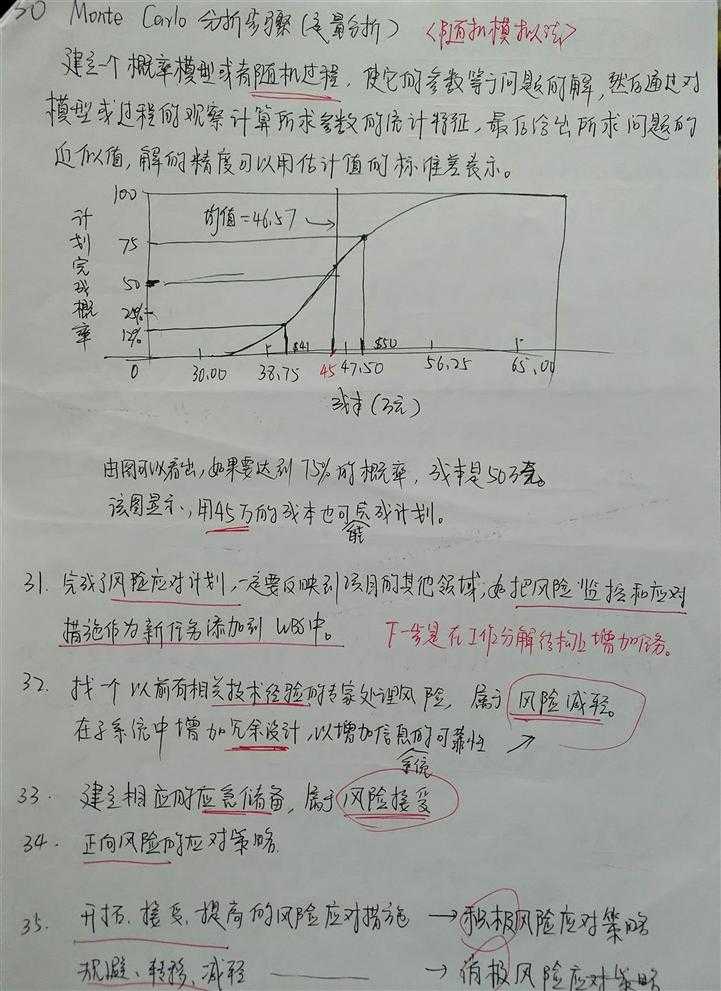 30 Monte Carlo 分析步骤(定量分析) <随机模拟法>
建立一个概率模型或者随机过程,使它的参数等于问题的解,然后通过对
模型或过程的观察计算所求参数的统计特征,最后给出所求问题的
近似值,解的精度可以用估计值的标准差表示。
计划完成概率
100
均值=46.57
75
50
25%
12%
$41 $50
0 30.00 38.75 45 47.50 56.25 65.00
成本(万元)
由图可以看出,如果要达到75%的概率,成本是50万美。
该图显示,用45万的成本也可能完成计划。
31. 完成了风险应对计划,一定要反映到项目的其他领域,如把风险监控和应对
措施作为新任务添加到WBS中。 下一步是在工作分解结构上增加任务。
32. 找一个以前有相关技术经验的专家处理风险,属于风险减轻。
在子系统中增加冗余设计,以增加信息系统的可靠性
33. 建立相应的应急储备,属于风险接受
34. 正向风险的应对策略.
35. 开拓、接受、提高的风险应对措施 → 积极风险应对策略
规避、转移、减轻 —— → 消极风险应对策略